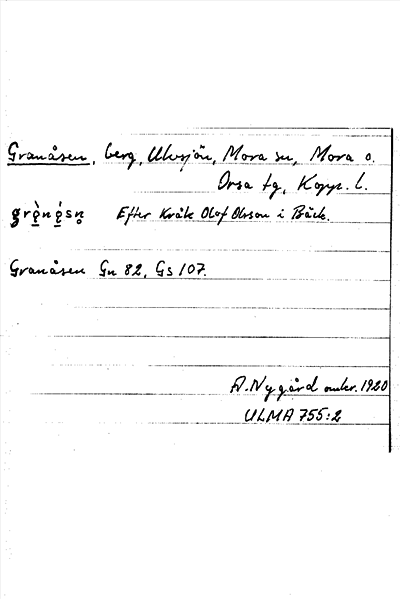 Granåsen, berg, Ulvsjön, Mora sn, Mora o.
Orsa tg, Kopp. l.
Efter Kråk Olof Olsson i Bäck.
Granåsen Gn 82, Gs 107.
A. Nygård omkr. 1920
ULMA 755:2